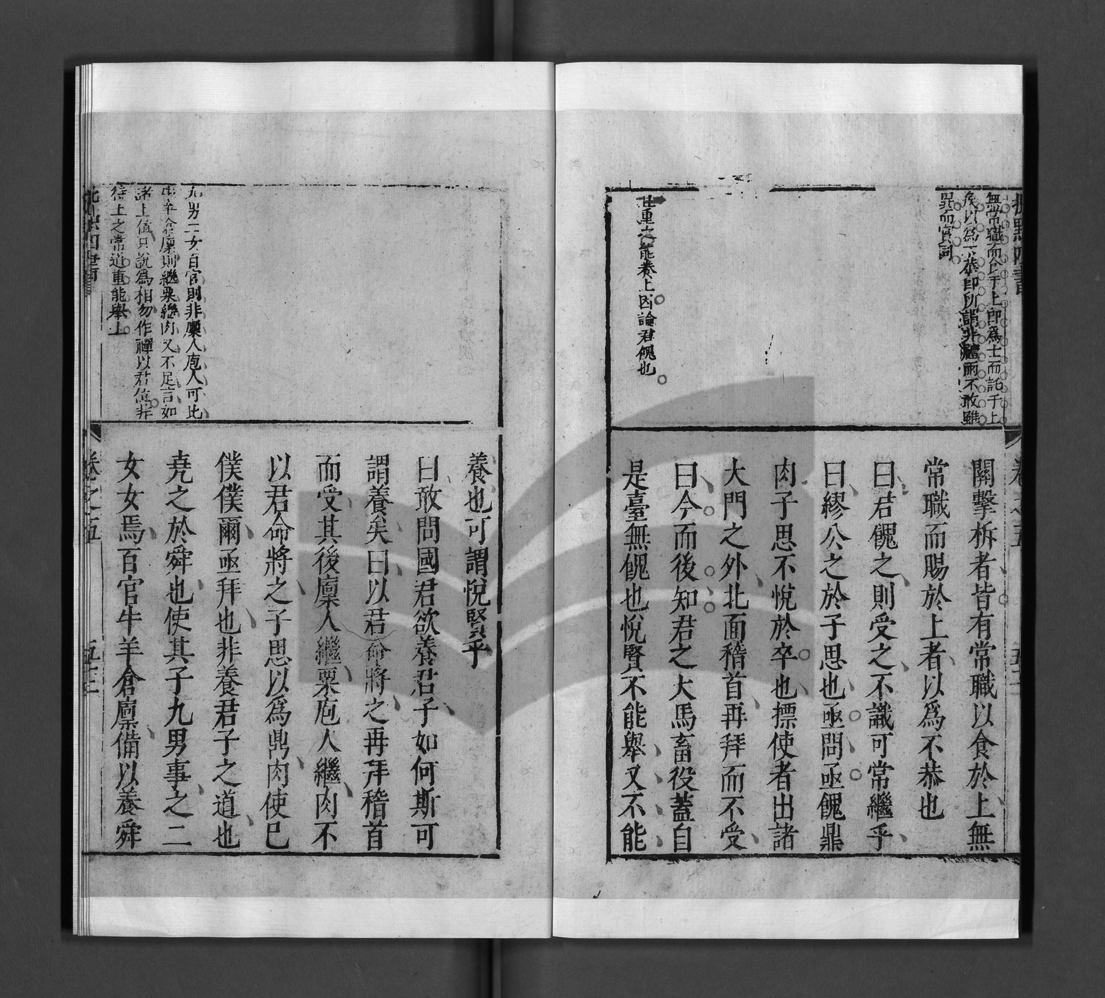 無常職而食于上即為士而託于上
矣以為不恭即所謂非禮而不敢雖
異而實同
關擊柝者皆有常職以食於上無
常職而賜於上者以為不恭也
曰君餽之則受之不識可常繼乎
曰繆公之於子思也亟問亟餽鼎
肉子思不悅於卒也摽使者出諸
大門之外北面稽首再拜而不受
曰今而後知君之犬馬畜伋蓋自
是臺無餽也悅賢不能舉又不能
卷之五
此重不能養上因論君餽也
養也可謂悅賢乎
曰敢問國君欲養君子如何斯可
謂養矣曰以君命將之再拜稽首
而受其後廩人繼粟庖人繼肉不
以君命將之子思以為鼎肉使己
僕僕爾亟拜也非養君子之道也
堯之於舜也使其子九男事之二
女女焉百官牛羊倉廩備以養舜
九男二女百官則非廩人庖人可比
牛羊倉廩則繼粟繼肉又不足言如
諸上位只說為相勿作禪以君位非
待上之常道重能舉上
卷之五